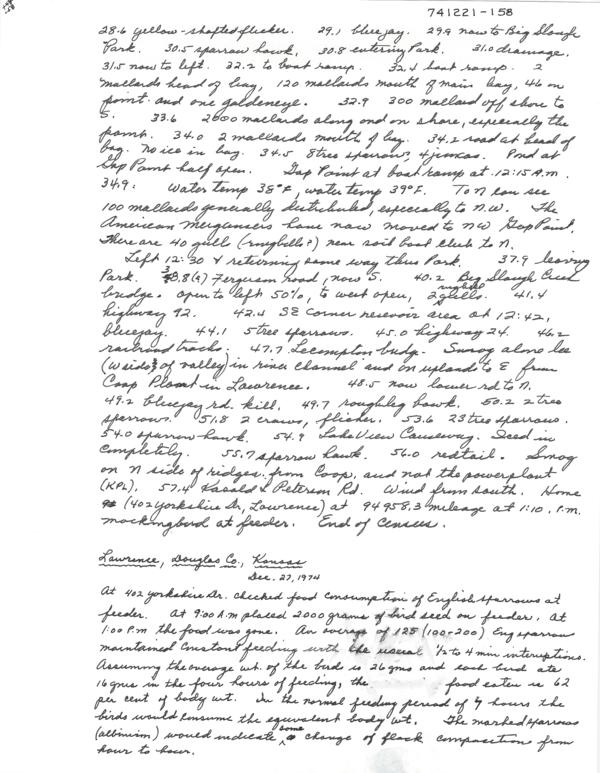 741221-158
28.6 yellow-shafted flicker. 29.1 bluejay. 29.9 now to Big Slough
Park. 30.5 sparrow hawk, 30.8 entering Park. 31.0 drainage.
31.5 now to left. 32.2 to boat ramp. 32.4 boat ramp. 2
mallards head of bay, 120 mallards mouth of main bay, 46 on
point and one goldeneye. 32.9 300 mallard off shore to
S. 33.6 2000 mallards along and on shore, especially the
point. 34.0 2 mallards mouth of bay. 34.2 road at head of
bay. No ice in bay. 34.5 8 tree sparrows, 4 juncos. Pond at
Gap Point half open. Gap Point at boat ramp at 12:15 A.m.
34.9. Water temp 38°F, water temp 39°F. To N can see
100 mallards generally distributed, especially to N.W. The
American Mergansers have now moved to NW Gap Point.
There are 40 gull (ringbills?) near sail boat club to N.
Left 12:30 & returning same way thru Park. 37.9 leaving
Park. 38.8(?) Ferguson road, now S. 40.2 Big Slough Creek
bridge. open to left 50%, to west open, 2 ringbill gulls. 41.4
highway 92. 42.4 SE corner resevoir area at 12:42,
bluejay. 44.1 5 tree sparrows. 45.0 highway 24. 46.2
railroad tracks. 47.7 Lecompton bridge. Smog along lee
(W side of valley) in river channel and on upland to E from
Coop Plant in Lawrence. 48.5 now lower rd to N.
49.2 bluejay rd. kill. 49.7 roughleg hawk. 50.2 2 tree
sparrows. 51.8 2 crows, flicker. 53.6 23 tree sparrows.
54.0 sparrow hawk. 54.9 Lake View Causeway. Iced in
completely. 55.7 sparrow hawk. 56.0 redtail. Smog
on N side of ridges from Coop, and not the powerplant
(KPL). 57.4 Kasold & Peterson Rd. Wind from south. Home
(402 Yorkshire Dr, Lawrence) at 94958.3 mileage at 1:10 P.m.
mockingbird at feeder. End of Census.
Lawrence, Douglas Co., Kansas
Dec. 27, 1974
At 402 Yorkshire Dr. checked food consumption of English sparrows at
feeder. At 9:00 A.m placed 2000 grams of bird seed on feeder. At
1:00 P.m the food was gone. An average of 125 (100-200) Eng sparrow
maintained constant feeding with the usual 1/2 to 4 min interuptions.
Assuming the average wt. of the bird is 26 gms and each bird ate
16 gms in the four hours of feeding, the food eaten is 62
per cent of body wt. In the normal feeding period of 7 hours the
birds would consume the equivalent body wt. The marked sparrows
(albinism) would indicate some change of flock composition from
hour to hour.